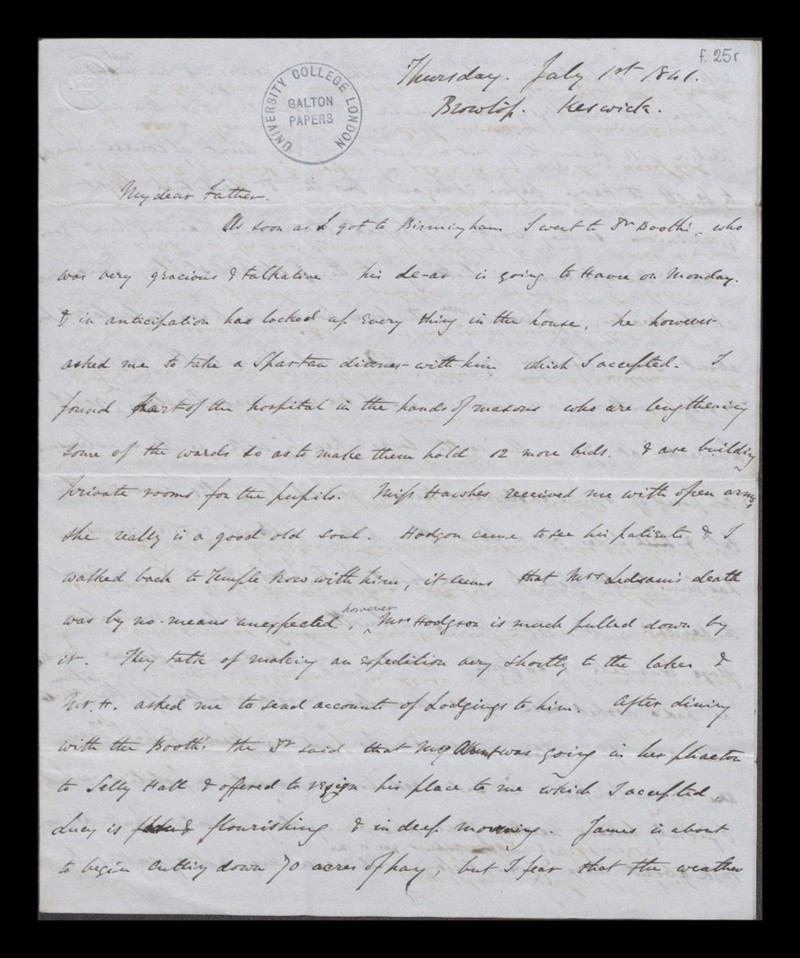 f. 25r
UNIVERSITY COLLEGE LONDON
GALTON
PAPERS
Thursday. July 1st 1841.
Browtop. Keswick.
My dear Father.
As soon as I got to Birmingham I went to Dr Booth's, who
was very gracious & talkative his is going to Havre on Monday.
& in anticipation has locked up every thing in the house, he however
asked me to take a Spartan dinner with him which I accepted. I
found part of the hospital in the hands of masons who are lengthening
some of the wards so as to make them hold 12 more beds. & are building
private rooms for the pupils. Miss Hawkes received me with open arms,
she really is a good old soul. Hodgson came to see his patients & I
walked back to Temple Row with him, it seems that Mrs Ledsam's death
was by no means unexpected, however Mrs Hodgson is much pulled down by
it. They talk of making an expedition very shortly to the lakes &
Mr. H. asked me to send account of Lodgings to him. After dining
with the Booths the Dr said that my Aunt was going in her phaeton
to Selly Hall & offered to resign his place to me which I accepted.
Lucy is flourishing & in deep mourning. James is about
to begin cutting down 70 acres of hay, but I fear that the weather